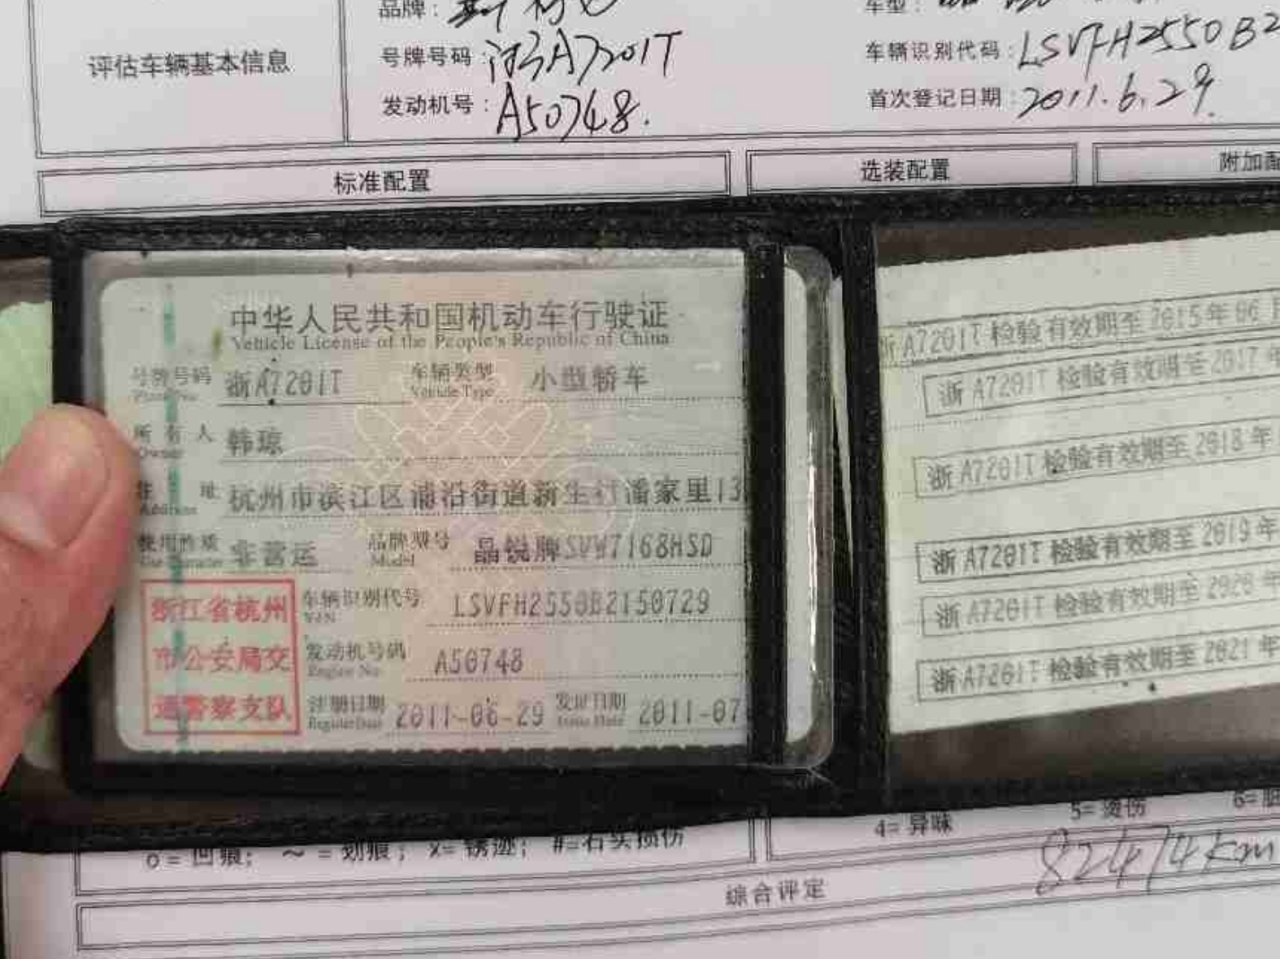 品牌：
车型：
评估车辆基本信息
号牌号码：浙A7201T
车辆识别代码：LSVFH2550B2
发动机号：A50748.
首次登记日期：2011.6.29.
标准配置
选装配置
附加配
中华人民共和国机动车行驶证
Vehicle License of the People's Republic of China
号牌号码 浙A7201T 车辆类型 小型轿车
Plate No. Vehicle Type
所有人 韩琼
Owner
住址 杭州市滨江区浦沿街道新生村潘家里13
Address
使用性质 非营运 品牌型号 晶锐牌SVW7168HSD
Use Character Model
浙江省杭州
市公安局交
通警察支队
车辆识别代号 LSVFH2550B2150729
VIN
发动机号码 A50748
Engine No.
注册日期 2011-06-29 发证日期 2011-07
Register Date Issue Date
浙A7201T 检验有效期至 2015年06
浙A7201T 检验有效期至 2017年
浙A7201T 检验有效期至 2018年
浙A7201T 检验有效期至 2019年
浙A7201T 检验有效期至 2020年
浙A7201T 检验有效期至 2021年
o = 凹痕； ～ = 划痕； x= 锈迹； #=石头损伤
4= 异味
5= 烫伤
6=
82474km
综合评定